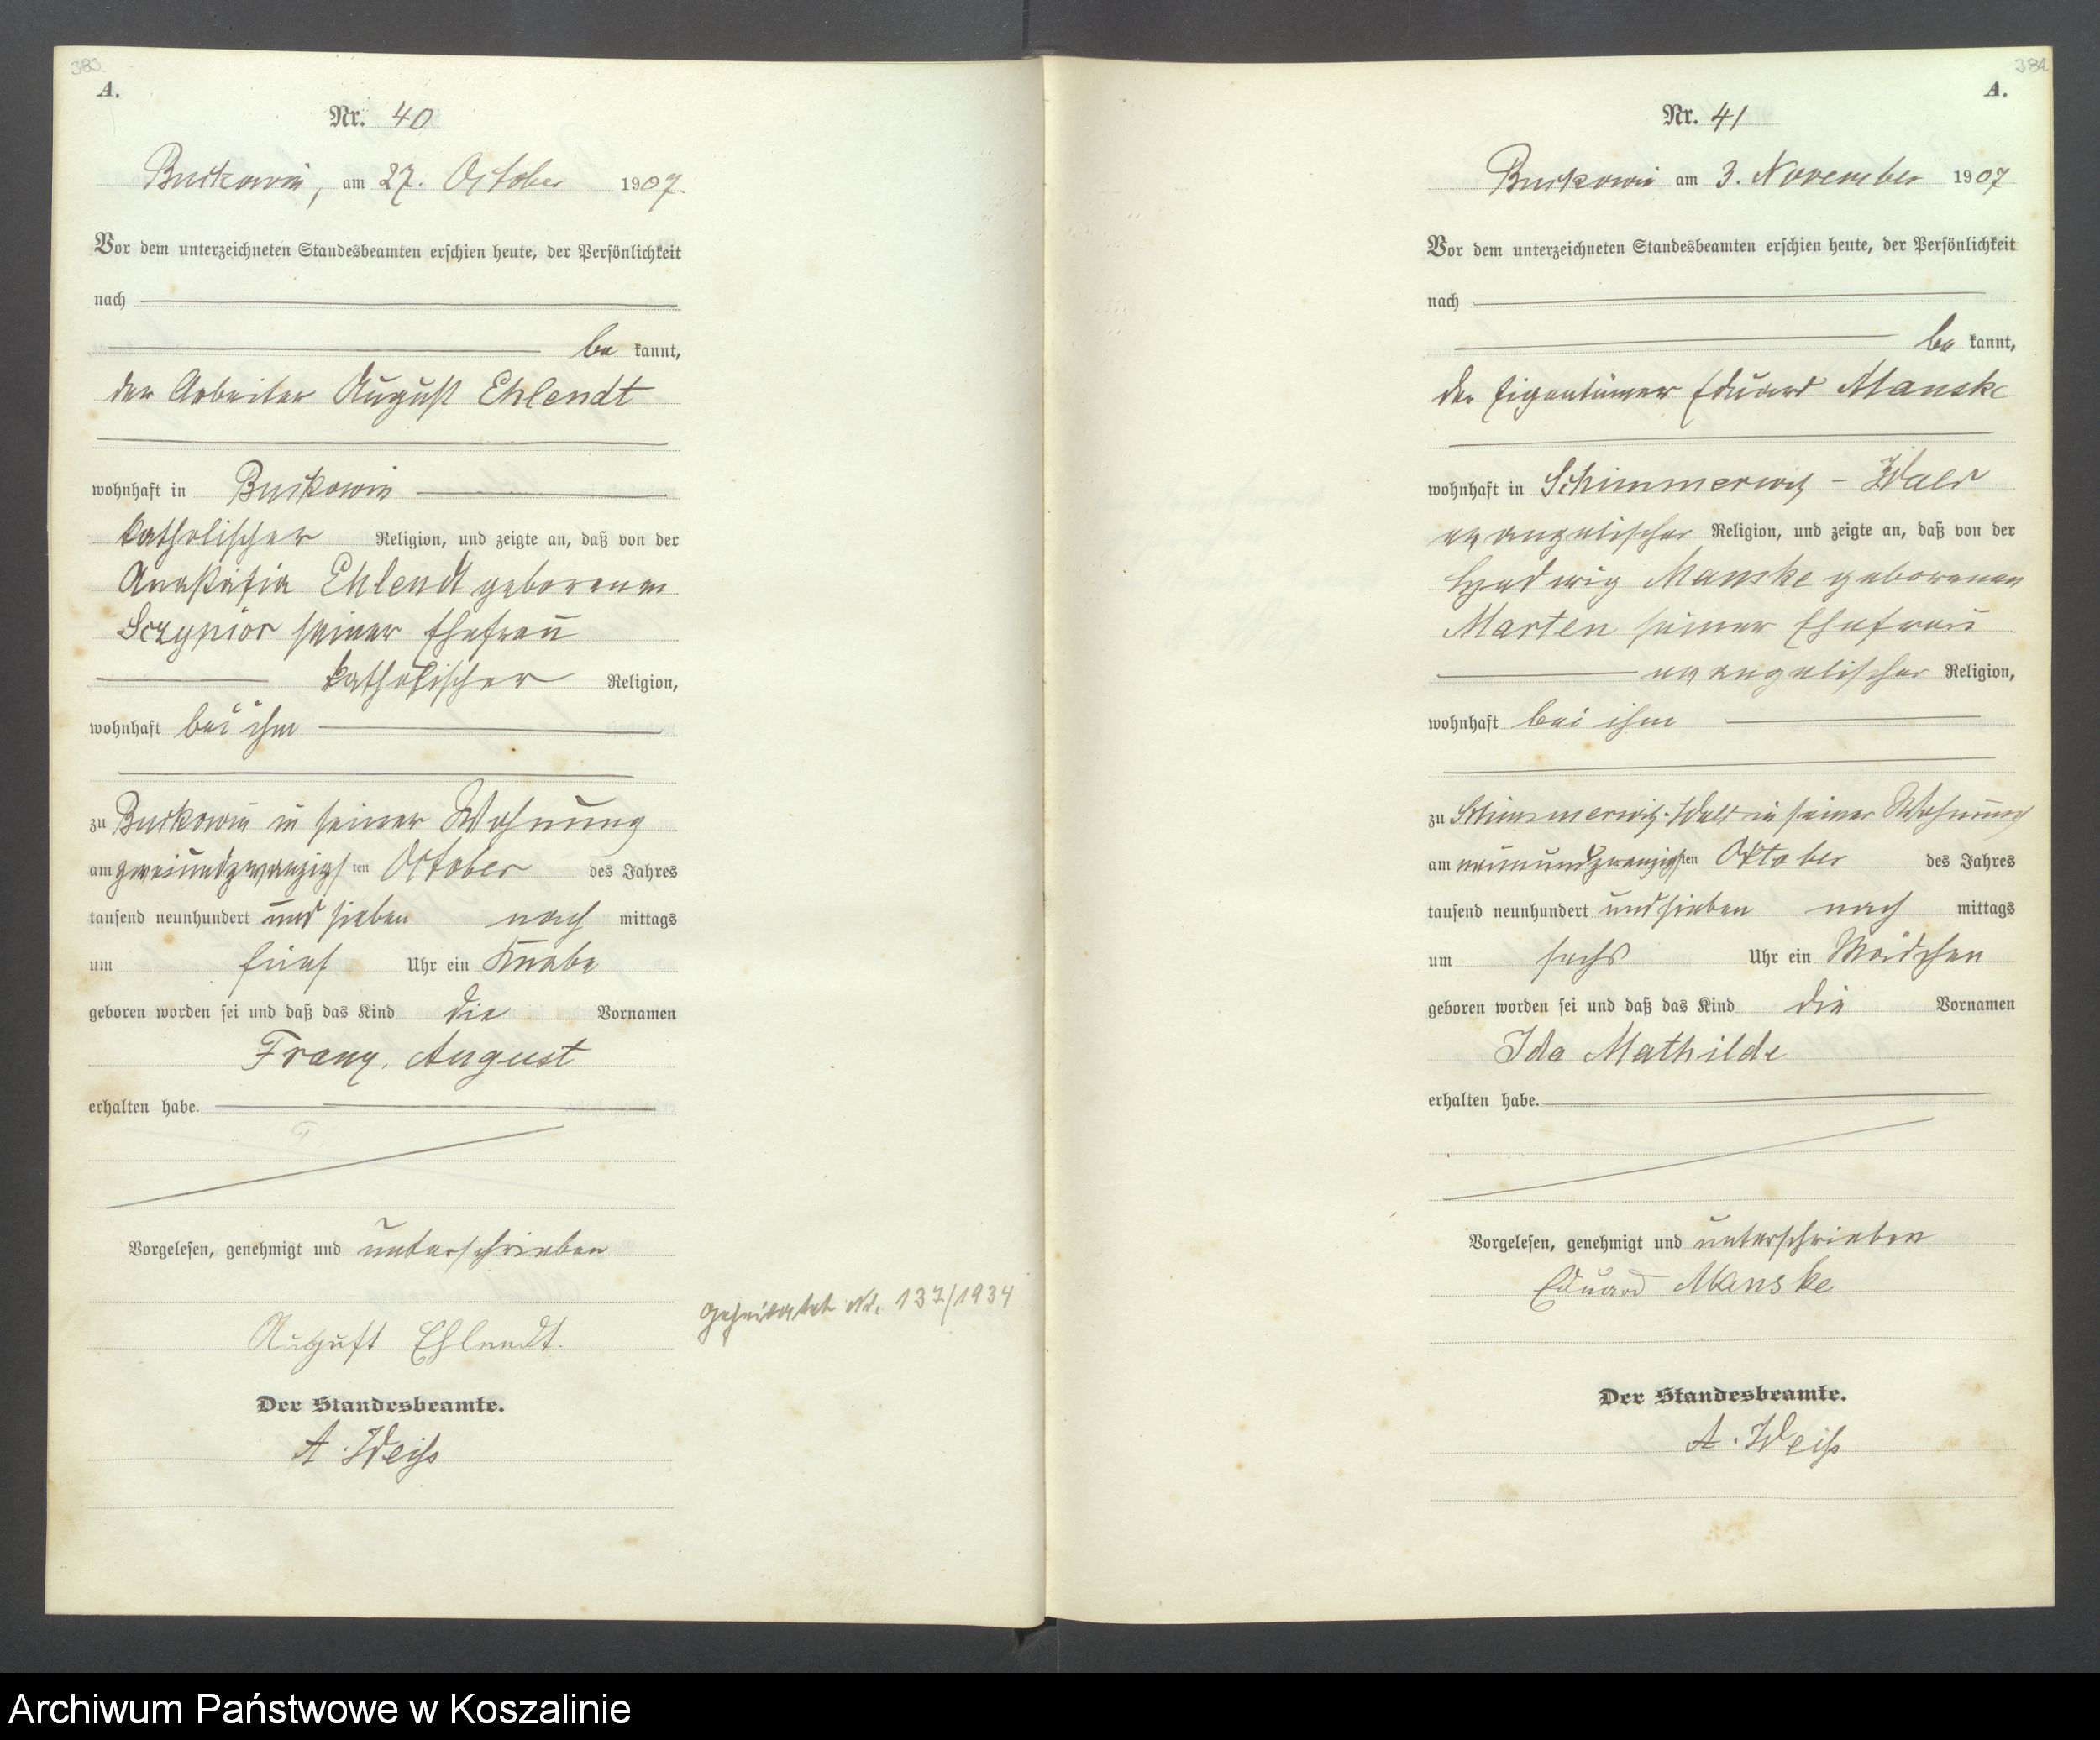 383.
A.
Nr. 40
Buckowin, am 27. October 1907
Vor dem unterzeichneten Standesbeamten erschien heute, der Persönlichkeit
nach
be kannt,
der Arbeiter August Ehlendt
wohnhaft in Buckowin
katholischer Religion, und zeigte an, daß von der
Anastasia Ehlendt geborenen
Sczypior seiner Ehefrau
katholischer Religion,
wohnhaft bei ihm
zu Buckowin in seiner Wohnung
am zweiundzwanzigsten October des Jahres
tausend neunhundert und sieben nach mittags
um fünf Uhr ein Knabe
geboren worden sei und daß das Kind die Vornamen
Franz, August
erhalten habe.
Vorgelesen, genehmigt und unterschrieben
August Ehlendt.
Der Standesbeamte.
A. Weiß
Geheiratet Nr. 137/1934
384
A.
Nr. 41
Buckowin am 3. November 1907
Vor dem unterzeichneten Standesbeamten erschien heute, der Persönlichkeit
nach
be kannt,
der Eigentümer Eduard Manske
wohnhaft in Schimmerwitz - Wald
evangelischer Religion, und zeigte an, daß von der
Hedwig Manske geborenen
Marten seiner Ehefrau
evangelischer Religion,
wohnhaft bei ihm
zu Schimmerwitz-Wald in seiner Wohnung
am neunundzwanzigsten Oktober des Jahres
tausend neunhundert und sieben nach mittags
um sechs Uhr ein Mädchen
geboren worden sei und daß das Kind die Vornamen
Ida Mathilde
erhalten habe.
Vorgelesen, genehmigt und unterschrieben
Eduard Manske
Der Standesbeamte.
A. Weiß
Archiwum Państwowe w Koszalinie